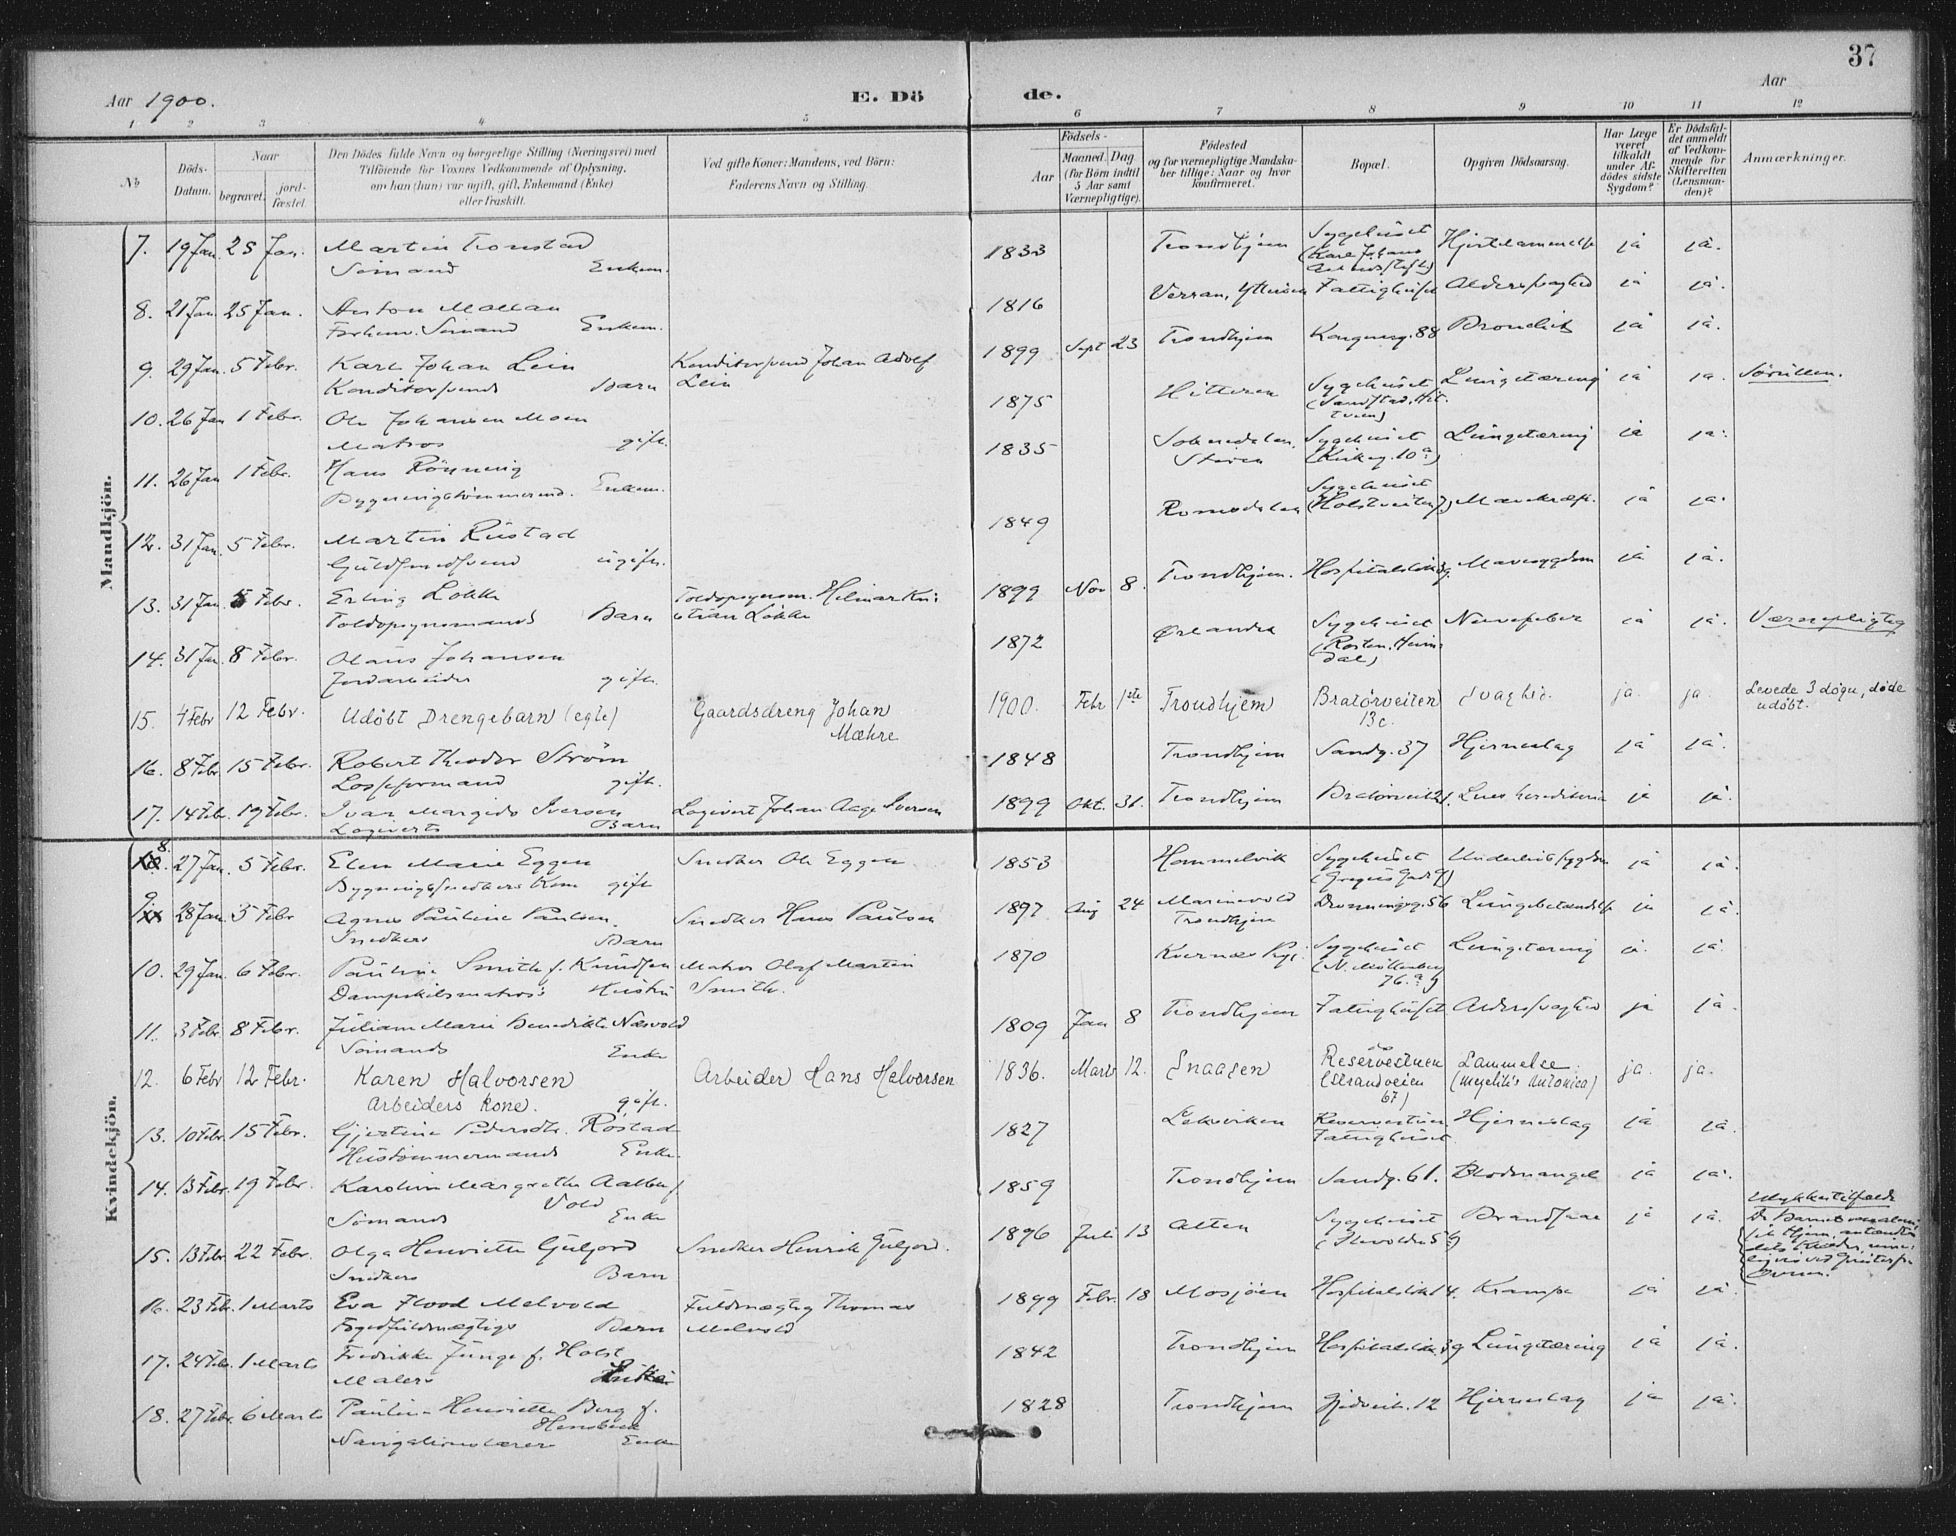 37
Aar 1900.
E. Dö
de.
Aar
1 2 3 4 5
6 7 8 9 10 11 12
No
Döds-Datum.
Naar
begravet.
jord-fæstet.
Den Dödes fulde Navn og borgerlige Stilling (Næringsvei) med
Tilföiende for Voxnes Vedkommende af Oplysning,
om han (hun) var ugift, gift, Enkemand (Enke)
eller fraskilt.
Ved gifte Koner: Mandens, ved Börn:
Faderens Navn og Stilling.
Födsels-
Aar
Maaned.
Dag
(for Börn indtil
5 Aar samt
Værnepligtige).
Födested
og for værnepligtige Mandska-
ber tillige: Naar og hvor
konfirmeret.
Bopæl.
Opgiven Dödsaarsag.
Har Læge
været
tilkaldt
under Af-
dödes sidste
Sygdom?
Er Dödsfal-
det anmeldt
af Vedkom-
mende for
Skifteretten
(Lensman-
den)?
Anmærkninger.
Mandkjön.
7. 19 Jan. 25 Jan. Martin Tronstad 1833 Trondhjem Sygehuset Hjertelammelse ja ja.
Sömand Enkem. (Karl Johans
8. 21 Jan 25 Jan. Anton 1816 Verran, Ytteröen Fattighuset Alderssvaghed ja ja.
Forhenv. Sömand Enkem.
9. 29 Jan. 5 Febr. Karl Johan Lein Konditorsvend Johan Adolf 1899 Sept 23 Trondhjem Kongensg. 88 Bronchit ja ja.
Konditorsvends Barn Lein
10. 26 Jan 1 Febr. Ole Johansen Moen 1875 Hitteren Sygehuset Lungetæring ja ja.
Matros gift.
11. 26 Jan 1 Febr. Hans Rönning 1835 Soknedalen, Sygehuset Lungetæring ja ja.
Bygningstömmermd. Enkem. Stören (Kirkeg. 10a)
12. 31 Jan. 5 Febr. Martin Rustad 1849 Romsdalen Sygehuset Mavekræft ja ja.
Guldsmedsvend ugift. (Holstveiten 7)
13. 31 Jan. 5 Febr. Erling Lökke Toldopsynsm. Hilmar Kri- 1899 Nov 8. Trondhjem. Mavesygdom ja ja.
Toldopsynsmands Barn stian Lökke
14. 31 Jan. 8 Febr. Olaus Johansen 1872 Ørlandet Sygehuset Nervefeber ja ja. Værnepligtig
Jordarbeider gift. (Rosten, Heimdal)
15. 4 Febr 12 Febr. Udöbt Drengebarn (egte) Gaardsdreng Johan 1900. Febr 1ste Trondhjem Bratörveiten Svaghed. ja. ja. Levede 3 dögn, döde
Mæhre 13c. udöbt.
16. 8 Febr 15 Febr. Robert Theodor Ström 1848 Trondhjem Sandg. 37 Hjerneslag ja ja.
Losseformand gift.
17. 14 Febr. 19 Febr. Ivar Margido Iversen Logivert Johan Aage Iversen 1899 Okt. 31. Trondhjem Lues hereditaria ja ja.
Logiverts Barn
Kvindekjön.
8. 27 Jan. 5 Febr. Elen Marie Eggen Snedker Ole Eggen 1853 Hommelvik Sygehuset Underlivssygdom ja ja.
Bygningssnedkers Kone gift
9. 28 Jan. 5 Febr Agnes Pauline Paulsen Snedker Hans Paulsen 1897 Aug 24 Marinevold Dronningsg. 56 Lungebetændelse ja ja.
Snedkers Barn Trondhjem
10. 29 Jan. 6 Febr. Pauline Smith f. Knudsen Matros Olaf Martin 1870 Kvernæs Sygehuset Lungetæring ja. ja.
Dampskibsmatros's Hustru Smith. (N. Möllenberg
76.a)
11. 3 Febr 8 Febr. Juliane Marie Benedikte Næsvold 1809 Jan 8 Trondhjem Fattighuset Alderssvaghed ja ja.
Sömands Enke
12. 6 Febr 12 Febr. Karen Halvorsen Arbeider Hans Halvorsen 1836. Marts 12. Snaasen Reservestuen Lammelse ja. ja.
Arbeiders Kone. gift. (Strandveien
67)
13. 10 Febr 15 Febr. Gjertine Pedersdtr. Rostad 1827 Leksviken Reservestuen Hjerneslag ja ja.
Hustömmermands Enke. Fattighuset
14. 13 Febr. 19 Febr. Karoline Margrethe Aalberg f. 1859 Trondhjem Sandg. 61. Blodmangel ja ja.
Vold
Sömands Enke
15. 13 Febr. 22 Febr. Olga Henriette Guljord Snedker Henrik Guljord. 1896 Juli 13 Alten Sygehuset Brandsaar ja ja. Ulykkestilfælde
Snedkers Barn
16. 23 Feb. 1 Marts Eva Flood Melvold Fuldmægtig Thomas 1899 Febr. 18 Mosjöen Krampe ja ja.
Fogedfuldmægtigs Barn Melvold
17. 24 Febr. 1 Marts Fredrikke Junge f. Holst 1842 Trondhjem Lungetæring ja ja.
Malers Enke
18. 27 Febr. 6 Marts Pauline Henriette Berg f. 1828 Trondhjem Hjerneslag ja ja.
Navigationslærer Enke